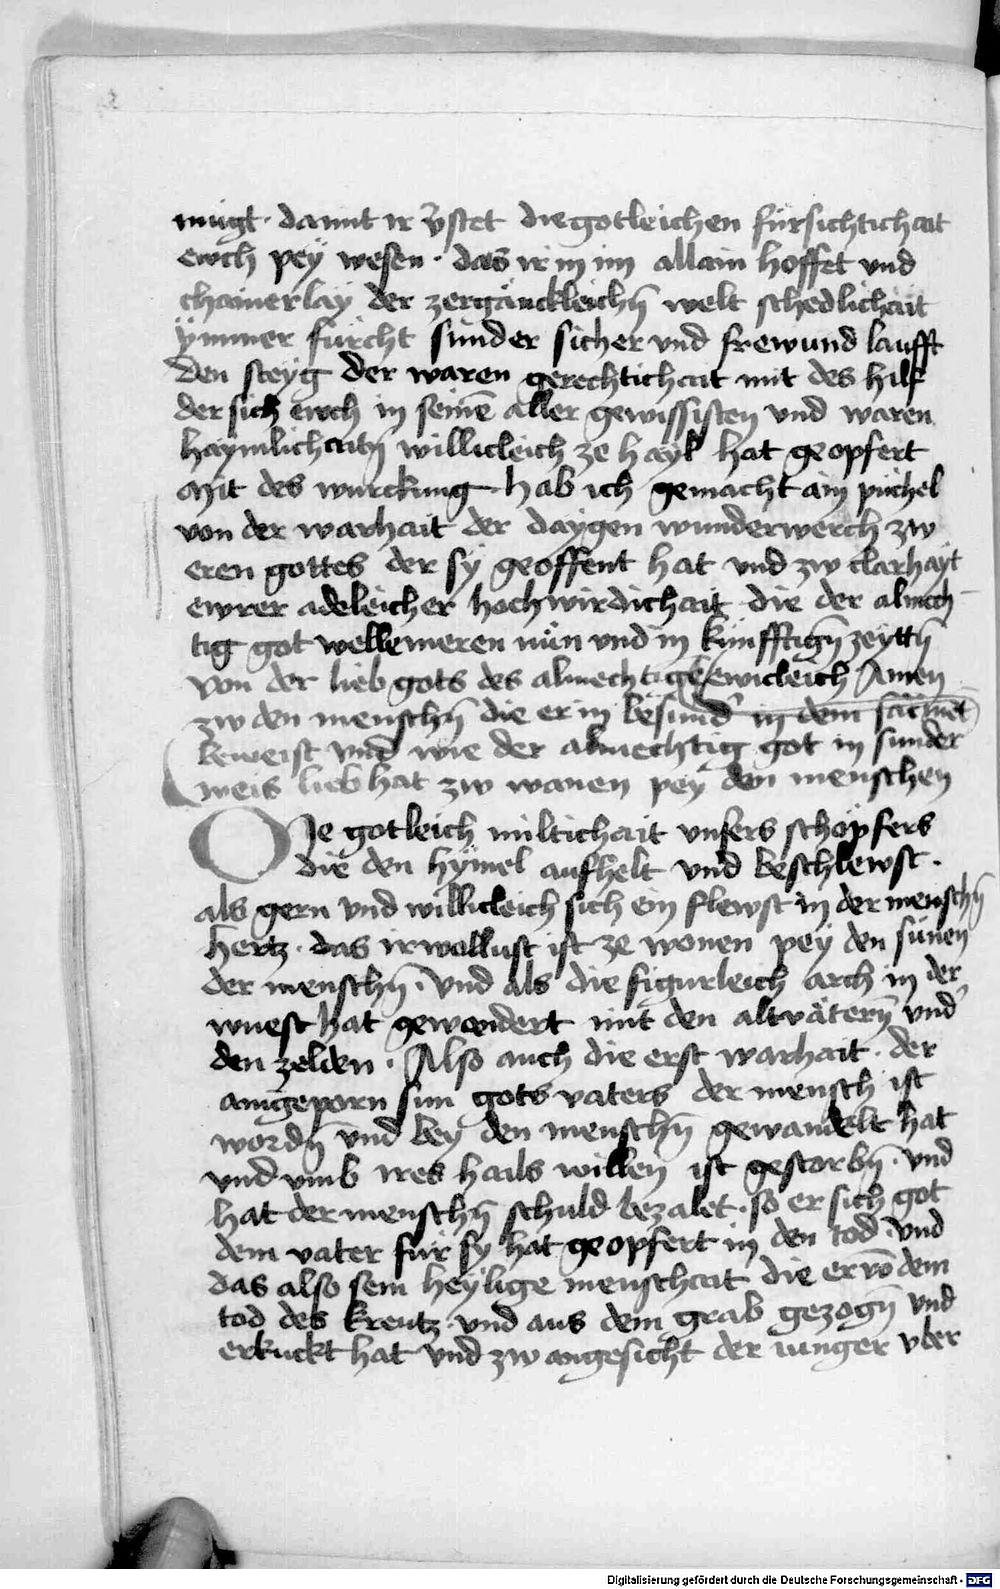 mügt · damit ir v̈stet die gotleichen fürsichtichait
ewch pey wesen · das ir in im allain hoffet und
chainerlay der zergänckleichn̄ welt schedlichait
ymmer fürcht sunder sicher vnd frew und laufft
den steyg der waren gerechtichait mit des hilf
der sich ewch in seinē aller gewissisten vnd waren
haymlichaitn̄ willicleich ze hayl hat geopfert
Mit des wurckung · hab ich gemacht ain püchel
von der warhait der daygen wunderwerch zw
eren gottes der sy geoffent hat vnd zw clarhayt
ewrer adeleicher hochwirdichait die der almech
tig got welle meren nün vnd in künfftign̄ zeyttn̄
von der lieb gots des almechtigē ewicleich Amen
zw den menschn̄ die er in besund' in dem sacrmēt
beweist vnd wie der almechtig got in sunder
weis lieb hat zw wanen pey den menschen
Die gotleich miltichait vnsers schöpfers
die den hymel aufhelt vnd beschlewst ·
als gern vnd willicleich sich ein flewst in der menschn̄
hertz · das ir wollust ist ze wonen pey den sünen
der menschn̄ · vnd als die figurleich arch in der
wuest hat gewandert mit den altvätern̄ vnd'
den zelden · Also auch die erst warhait · der
aingeporn sun gots vaters der mensch ist
wordn̄ vnd bey den menschn̄ gewandelt hat
vnd vmb ires hails willen ist gestorbn̄ · vnd
hat der menschn̄ schuld bezalet · so er sich got
dem vater für sy hat geopfert in den tod · vnd
das also sein heylige menschait die er vō dem
tod des kreutz · vnd aus dem grab gezogn̄ vnd
erkuckt hat vnd zw angesicht der iunger vber